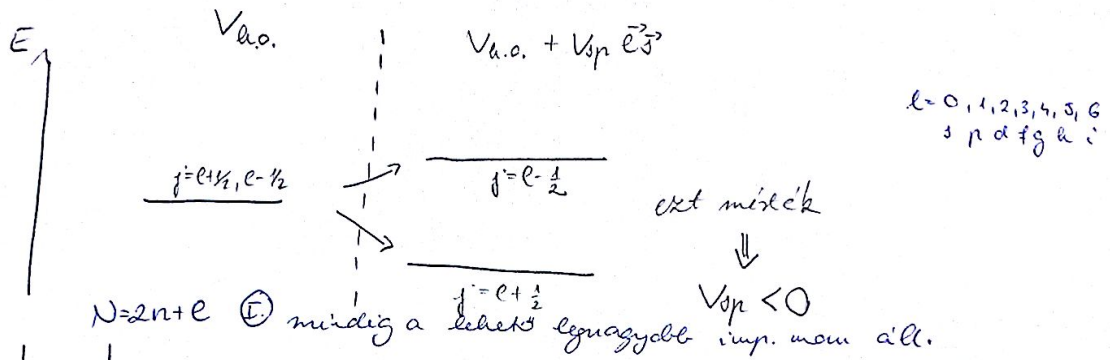 E
V_{h.o.}
V_{h.o.} + V_{sp} \vec{l}\vec{s}
l = 0, 1, 2, 3, 4, 5, 6
s p d f g h i
j=l+1/2, l-1/2
j=l-\frac{1}{2}
ezt mérték
⇓
j=l+\frac{1}{2}
V_{sp} < 0
N=2n+l Ⓘ mindig a lehető legnagyobb imp. mom áll.